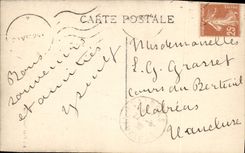 CARTE POSTALE
Bons
souvenirs
et amitiés
Mesdemoiselles
L. G. Grasset
Cours du Berteuil
Valréas
Vaucluse
25